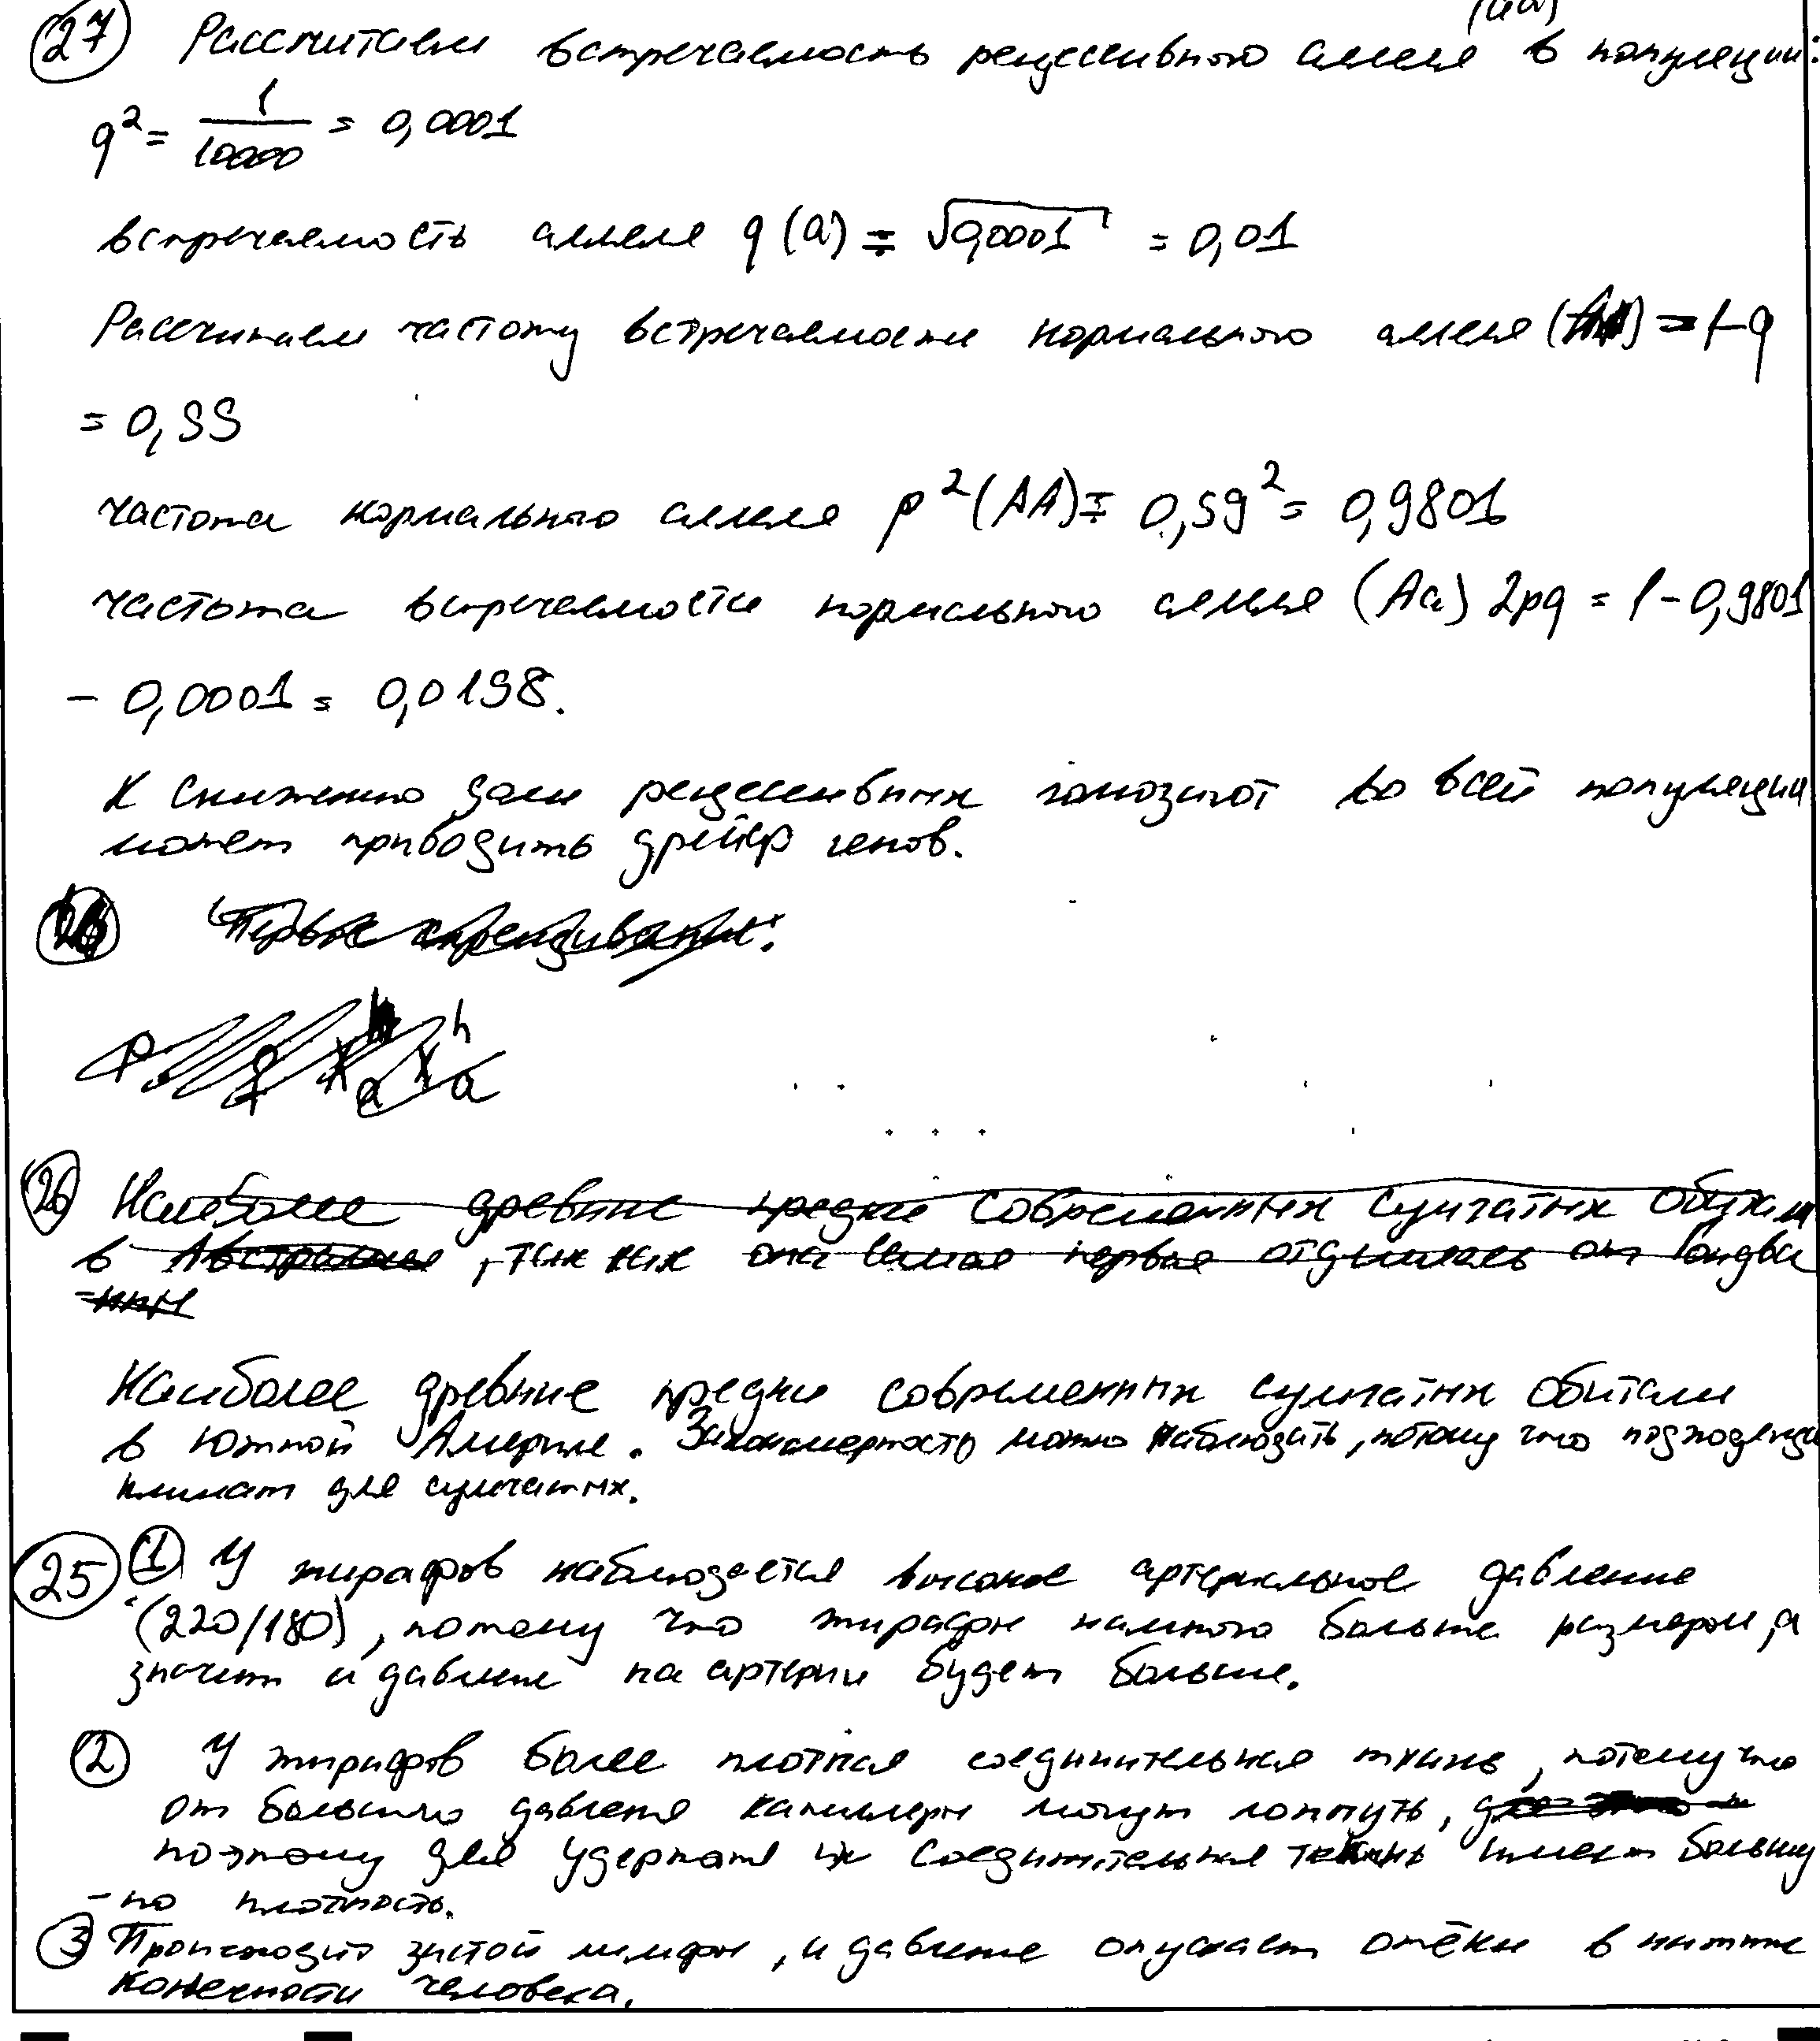 (аа)
27 Рассчитаем встречаемость рецессивного аллеля в популяции:
q² = 1/10000 = 0,0001
встречаемость аллеля q (a) = √0,0001 = 0,01
Рассчитаем частоту встречаемости нормального аллеля = 1-q
= 0,99
частота нормального аллеля p²(AA) = 0,99² = 0,9801
частота встречаемости нормального аллеля (Aa) 2pq = 1 - 0,9801
- 0,0001 = 0,0198.
К снижению доли рецессивных гомозигот во всей популяции
может приводить дрейф генов.
Первое скрещивание:
P: ♀ X X h a a
26 Наиболее древние предки современных сумчатых
в Австралии, так как она самая первая отделилась от Гондва
-ны
Наиболее древние предки современных сумчатых обитали
в Южной Америке. Закономерность можно наблюдать, потому что подходящи
климат для сумчатых.
25 1 У жирафов наблюдается высокое артериальное давление
(220/180), потому что жирафы намного больше размером, а
значит и давление на артерии будет больше.
2 У жирафов более плотная соединительная ткань, потому что
от большого давления капилляры могут лопнуть,
поэтому для удержания их соединительная ткань имеет большу
-ю плотность.
3 Происходит застой лимфы, и давление опускает отёки в нижние
конечности человека.